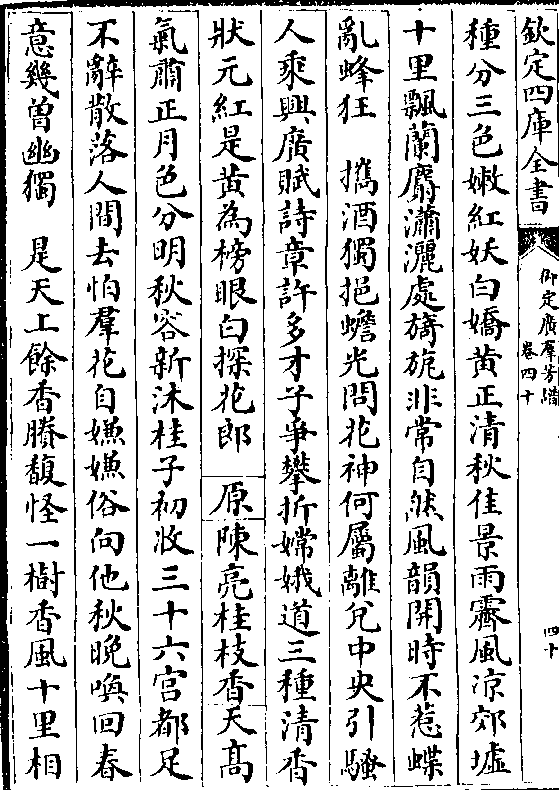 欽定四庫全書
御定廣羣芳譜
卷四十
四十
種分三色嫩紅妖白嬌黄正清秋佳景雨霽風凉郊墟
十里飄蘭麝瀟灑處旖旎非常自然風韻開時不惹蝶
亂蜂狂　攜酒獨挹蟾光問花神何屬離兊中央引騷
人乘興廣賦詩章許多才子爭攀折嫦娥道三種清香
狀元紅是黄為榜眼白探花郎　原陳亮桂枝香天髙
氣肅正月色分明秋容新沐桂子初收三十六宫都足
不辭散落人間去怕羣花自嫌嫌俗向他秋晚喚回春
意幾曾幽獨　是天工餘香賸馥怪一樹香風十里相